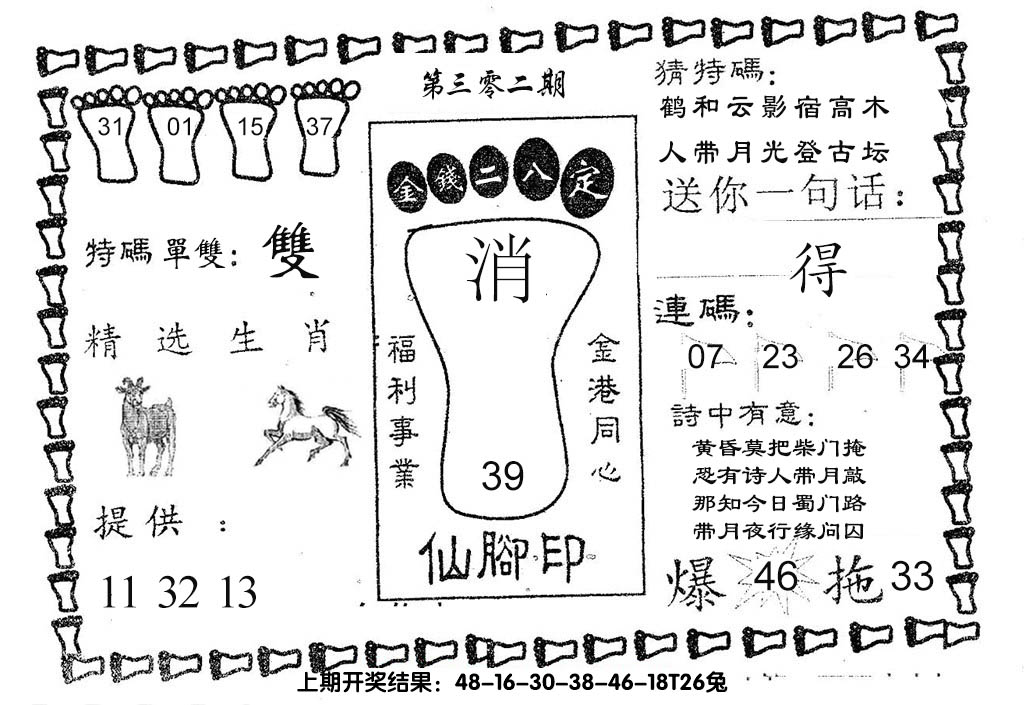 第三零二期
31 01 15 37
特碼單雙：雙
精选生肖
提供：
11 32 13
金錢二八定
消
福利事業
金港同心
39
仙腳印
猜特碼：
鹤和云影宿高木
人带月光登古坛
送你一句话：
得
連碼：
07 23 26 34
詩中有意：
黄昏莫把柴门掩
恐有诗人带月敲
那知今日蜀门路
带月夜行缘问囚
爆 46 拖 33
上期开奖结果：48-16-30-38-46-18T26兔